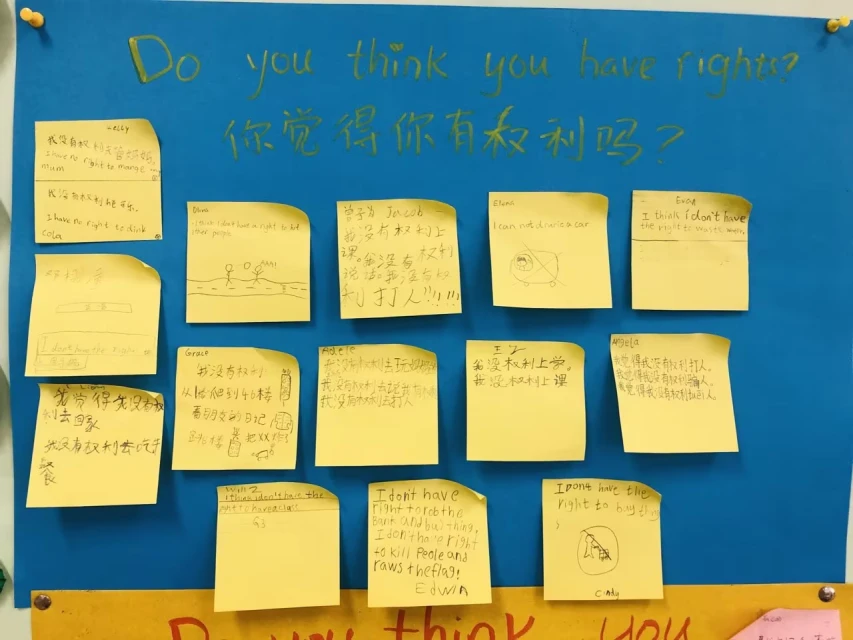 Do you think you have rights?
你觉得你有权利吗?
我没有权利去管妈妈.
I have no right to manage my
mum
我没有权利喝可乐.
I have no right to drink
cola
I don't have a right to
other people
曾子为 Jacob
我没有权利上
课。我没有权利
说话。我没有权
利打人!!!!!
I can not drive a car
I think i don't have
the right to waste
I don't have the right
Grace
我没有权利
爬到46楼
看朋友的日记
跳楼 把XX
Adele
我没有权利去
我没有权利去
我没有权利去打人
我没权利上学。
我没权利上课
Angela
我觉得我没有权利打人.
我觉得我没有权利骗人.
我觉得我没有权利 人.
我觉得我没有权
利去回家
我没有权利去吃
餐
Will
I think i don't have the
G3
I dont have
right to rob the
Bank and thing,
I don't have right
to kill Peole and
raws the flag!
Edwin
I Dont have the
right to buy
Cindy
Do you think you